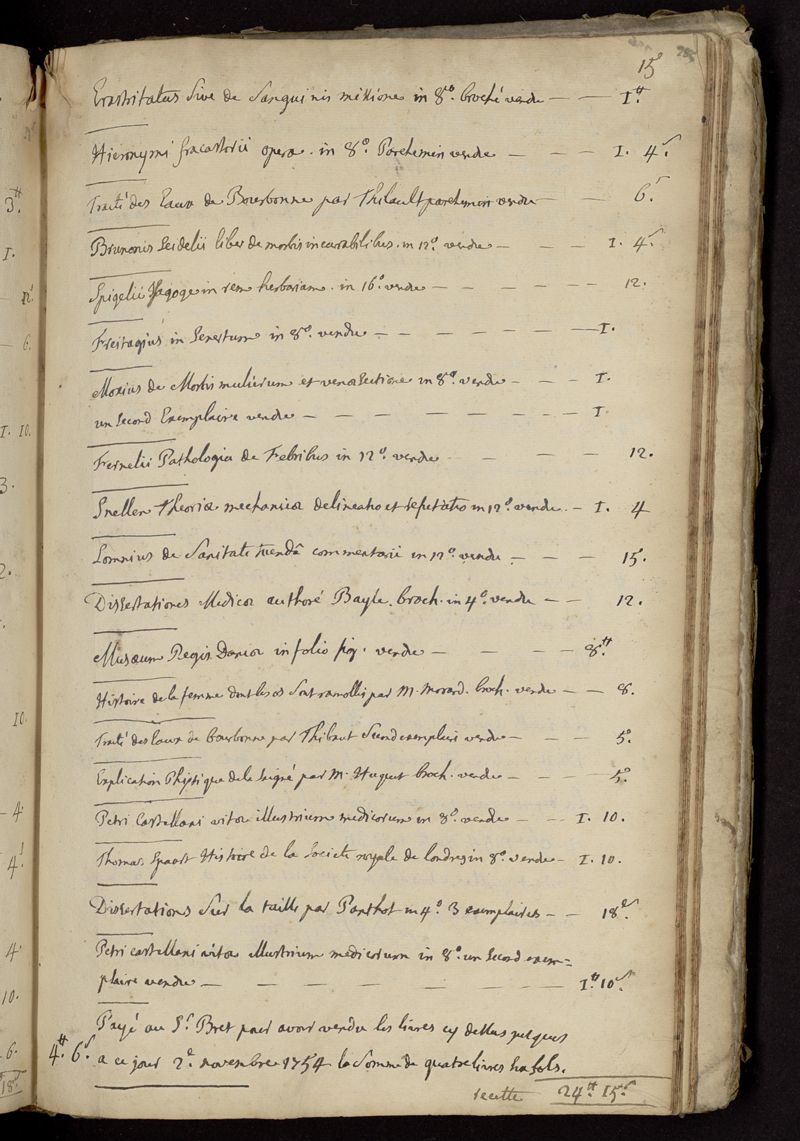 15
Erastritatus Sive de Sanguinis missione in 8º. broché vendu — — I.ᵗᵗ
Hieronymi fracastorii opera . in 8º. Parchemin vendu — — — I. 4.ˢ
Traité des Eaux de Bourbonne par Thibault parchemin vendu — — 6.ˢ
Brunonis Seidelii liber de morbis incurabilibus. in 12º. vendu — — — I. 4.ˢ
Spigelii Isagoge in rem herbariam. in 16º. vendu — — — — — 12.
Freitagius in Senertum in 8º. vendu — — — — — — I.
Moxius de Morbis mulierum et venæ Sectione in 8º. vendu — — — I.
un Second Exemplaire vendu — — — — — — — — I.
Fernelii Pathologia de Febribus in 12º. vendu — — — 12.
Snellen Theoriæ mechanicæ delineatio et refutatio in 12º. vendu. — I. 4
Lomnius de Sanitate tuendâ commentarii in 12º. vendu — — — 15.
Dissertationes Medicæ authore Bayle. broch. in 4º. vendu — — 12.
Musæum Regis Daniæ in folio fig. vendu — — — — 8.ᵗᵗ
Histoire de la femme dont les os Sont ramollis par M. Morand. broch. vendu — — 8.
Traité des Eaux de bourbonne par Thibaut Second exemplaire vendu — — — 5.
Explication Physique de la Saigné par M. Huguet broch. vendu — — — 5.
Petri Castellani vitæ illustrium medicorum in 8º. vendu — — I. 10.
Thomas Sparst Histoire de la Societe royale de londres in 8º. vendu — I. 10.
Dissertations Sur la taille par Panthot in 4º. 3 exemplaires — — 18.ˢ
Petri castellani vitæ illustrium medicorum in 8º. un Second exem=
plaire vendu — — — — — — — — I.ᵗᵗ 10.ˢ
Payé au Sʳ. Bret pour avoir vendu les livres cy dessus jusques
4.ᵗᵗ 6.ˢ a ce jour 2.ᵉ novembre 1754 la Somme de quatre livres six sols.
recette 24.ᵗᵗ 15.ˢ